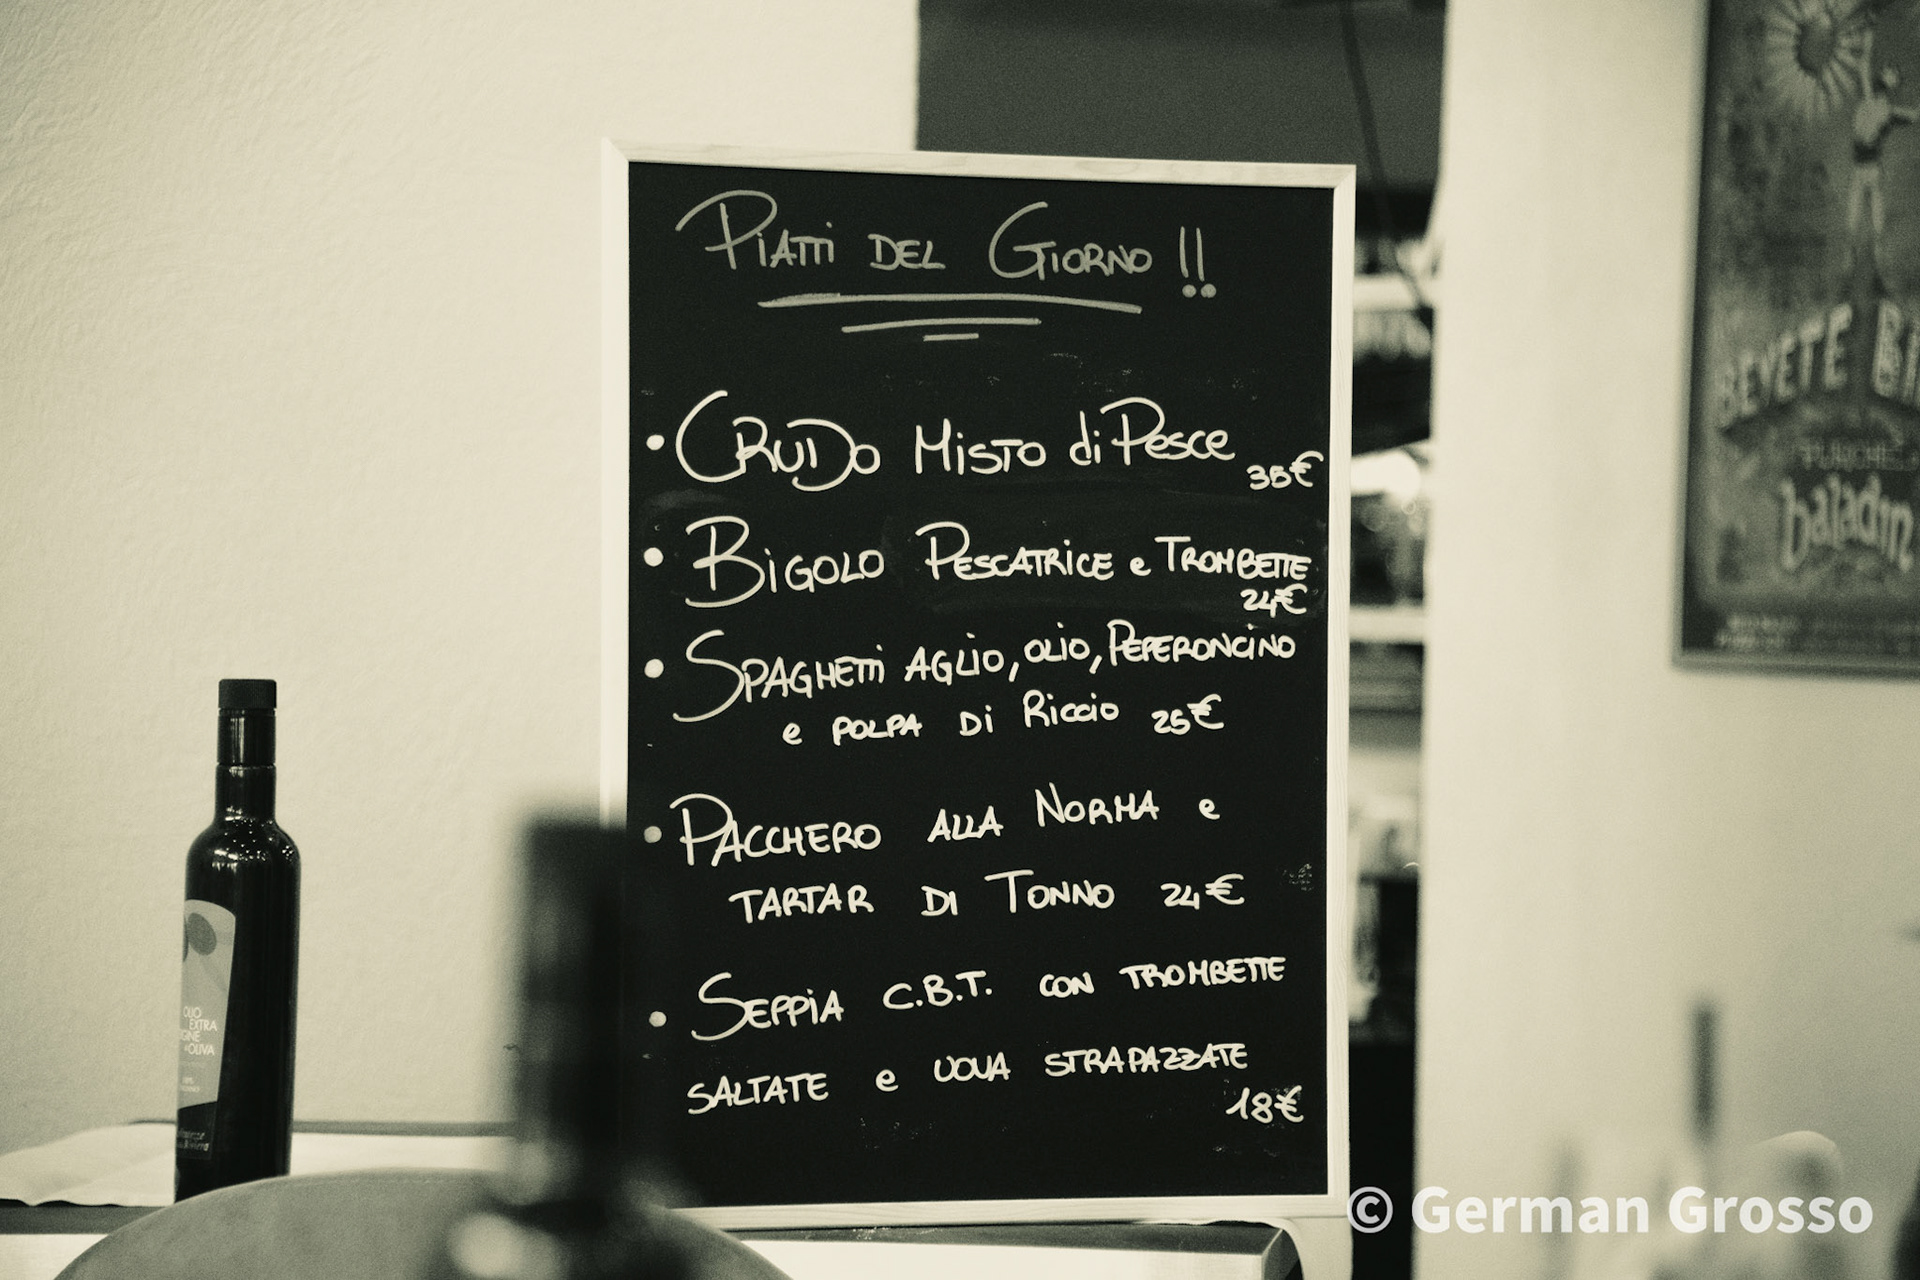 PiATTi DEL GIORNO !!
• CRUDO MiSTO di Pesce
35€
• BiGOLO PESCATRiCE e TROMBETTE
24€
• SPAGHETTi AGLiO, OLiO, PEPERONCiNO
e POLPA Di Riccio 25€
• PACCHERO ALLA NORMA e
TARTAR DI TONNO 24€
• SEPPiA C.B.T. CON TROMBETTE
SALTATE e UOVA STRAPAZZATE
18€
BEVETE
baladin
OLIO
EXTRA
OLIVA
© German Grosso